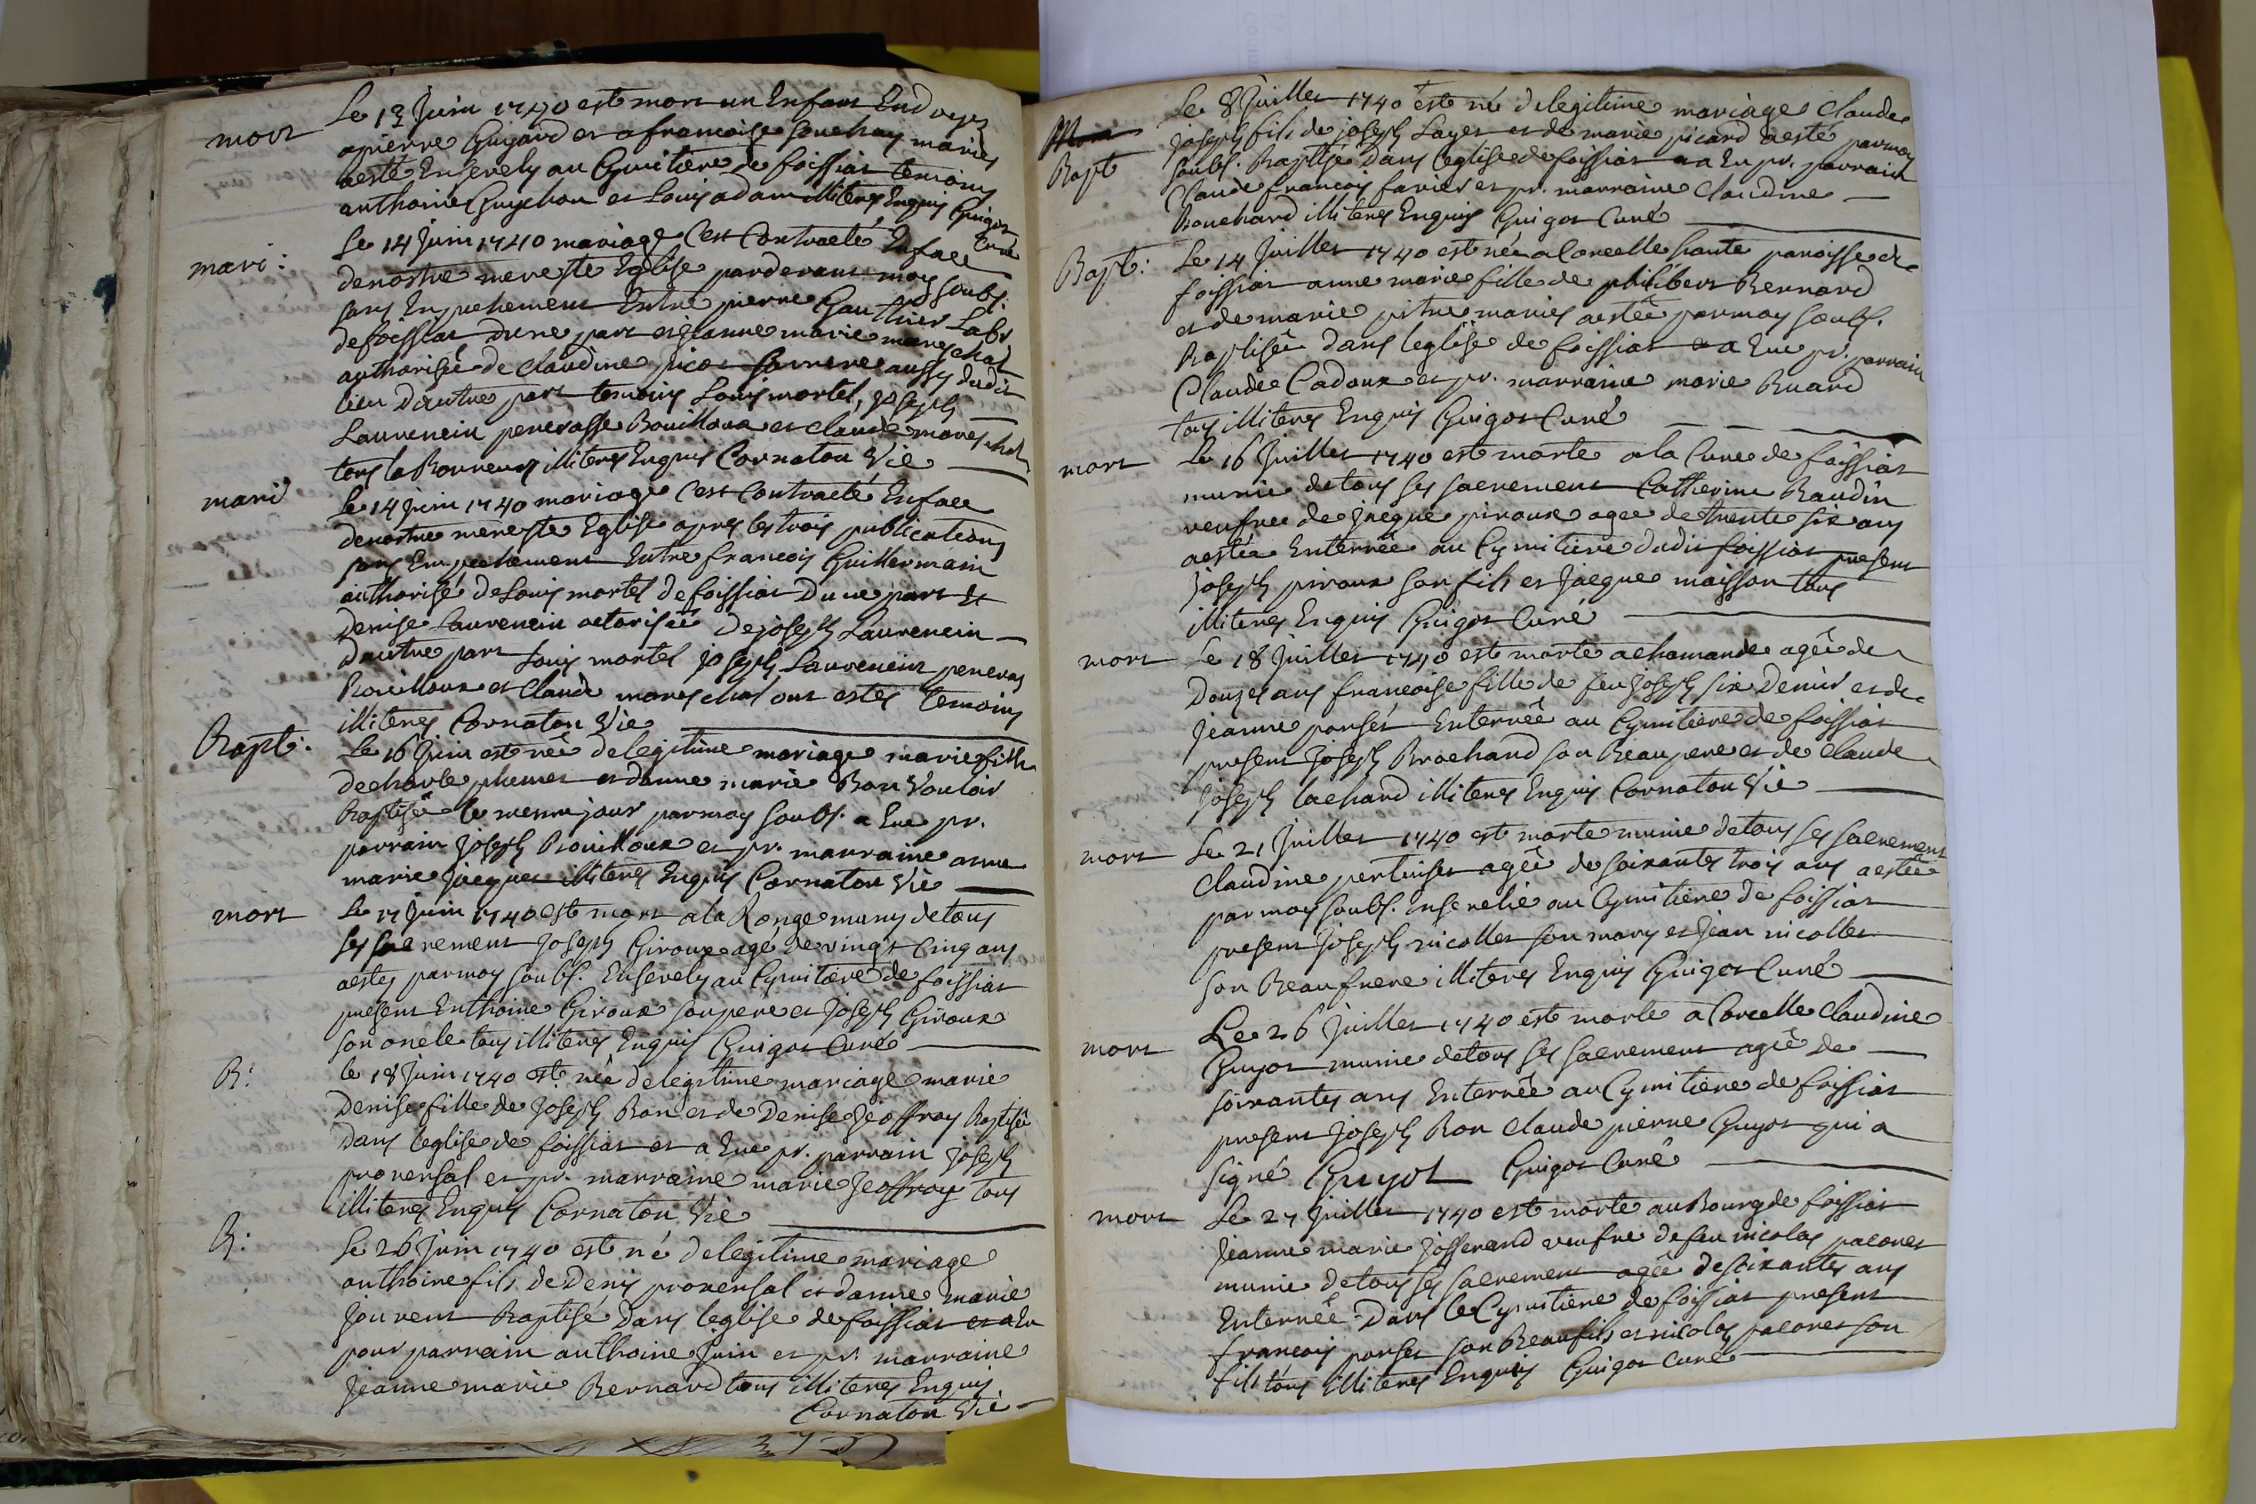 mort
Le 13 Juin 1740 est mort un Enfant End
apierre Guyard et a francoise souchay mariés
aesté Ensevely au Cymitiere de foissiat temoins
anthoine Guychon et Louis adam illiteres Enquis Guigot
Curé
mari:
Le 14 Juin 1740 mariage C'est Contracté Enface
denostre mere ste Eglise pardevant moy soubs.
sans Enpechement Entre pierre Gauthier Labr
defoissiat Dune part et jeanne marie mareschat
authorisée de claudine picot sa mere aussy dudit
lieu Dautre part temoins Louis mortel, Joseph
Laurencin peneras Bouilloux et claude mareschal
tous laboureurs illiteres Enquis Cornaton Vic
mari
Le 14 juin 1740 mariage C'est Contracté Enface
denostre mere ste Eglise apres les trois publications
sans Empechement Entre francois Guillermain
authorisé de Louis mortel defoissiat Dune part Et
Denise Laurencin autorisée de joseph Laurencin
Dautre part Louis mortel Joseph Laurencin peneras
Bouilloux et Claude mareschal ont estés temoins
illiteres Cornaton Vic
Bapt:
Le 16 Juin est née delegitime mariage marie fille
decharle plumet et danne marie Bon Vouloir
baptisée le meme jour parmoy soubs. a Eue pr.
parrain Joseph Bouilloux et pr. marraine anne
marie Jacquet illiteres Enquis Cornaton Vic
mort
Le 17 Juin 1740 est mort a la Ronge muny detous
ses sacrement Joseph Giroux agé de vingt Cinq ans
aestez parmoy soubs. Ensevely au Cymitiere de foissiat
present Enthoine Giroux son pere et Joseph Giroux
son oncle tous illiteres Enquis Guigot Curé
B:
le 18 Juin 1740 est née delegitime mariage marie
Denise fille de Joseph Bon et de Denise Jeoffray Baptisée
Dans leglise de foissiat et a Eue pr. parrain Joseph
provensal et pr. marraine marie Jeoffray tous
illiteres Enquis Cornaton Vic
B:
Le 26 Juin 1740 est né delegitime mariage
anthoine fils de Denis provensal et danne marie
Jouvent Baptisé Dans leglise de foissiat et a Eu
pour parrain anthoine Juin et pr. marraine
Jeanne marie Bernard tous illiteres Enquis
Cornaton Vic
Mort
Bapt
Le 8 Juillet 1740 est né delegitime mariage claude
Joseph fils de joseph Layet et de marie picard aesté parmoy
soubs. Baptisé Dans leglise de foissiat a Eu pr. parrain
Claude francois favier et pr. marraine claudine
Bouchard illiteres Enquis Guigot Curé
Bapt:
Le 14 Juillet 1740 est née a Corcelle haute paroisse de
foissiat anne marie fille de philibert Bernard
et de marie pitre mariés aestée parmoy soubs.
Baptisée dans leglise de foissiat a Eue pr. parrain
Claude Cadoux et pr. marraine marie Buard
tous illiteres Enquis Guigot Curé
mort
Le 16 Juillet 1740 est morte a la Cure de foissiat
munie de tous ses sacrement Catherine Baudin
veufve de Jacque piroux agee de trente six ans
aestée Enterrée au Cymitiere dudit foissiat present
Joseph piroux son fils et Jacque maisson tous
illiteres Enquis Guigot Curé
mort
Le 18 Juillet 1740 est morte a chamande agée de
Douzes ans francoise fille de feu Joseph six Denier et de
Jeanne ponset Enterrée au Cymitiere de foissiat
present Joseph Brochand son Beaupere et de Claude
Joseph lachard illiteres Enquis Cornaton Vic
mort
Le 21 Juillet 1740 est morte munie de tous ses sacrement
Claudine pertuiset agée de soixantes trois ans aestée
par moy soubs. Ensevelie au Cymitiere de foissiat
present Joseph nicollet son mary et Jean nicollet
son Beaufrere illiteres Enquis Guigot Curé
mort
Le 26 Juillet 1740 est morte a Corcelle Claudine
Guyot munie detous ses sacrement agée de
soixantes ans Enterrée au Cymitiere de foissiat
present Joseph Bon Claude pierre Guyot qui a
signé Guyot Guigot Curé
mort
Le 27 Juillet 1740 est morte au Bourg de foissiat
Jeanne marie Josserand veufve de feu nicolas pacoret
munie de tous ses sacrement agée de soixantes ans
Enterrée Dans le Cymitiere de foissiat present
francois ponset son Beaufils et nicolas pacoret son
fils tous illiteres Enquis Guigot Curé